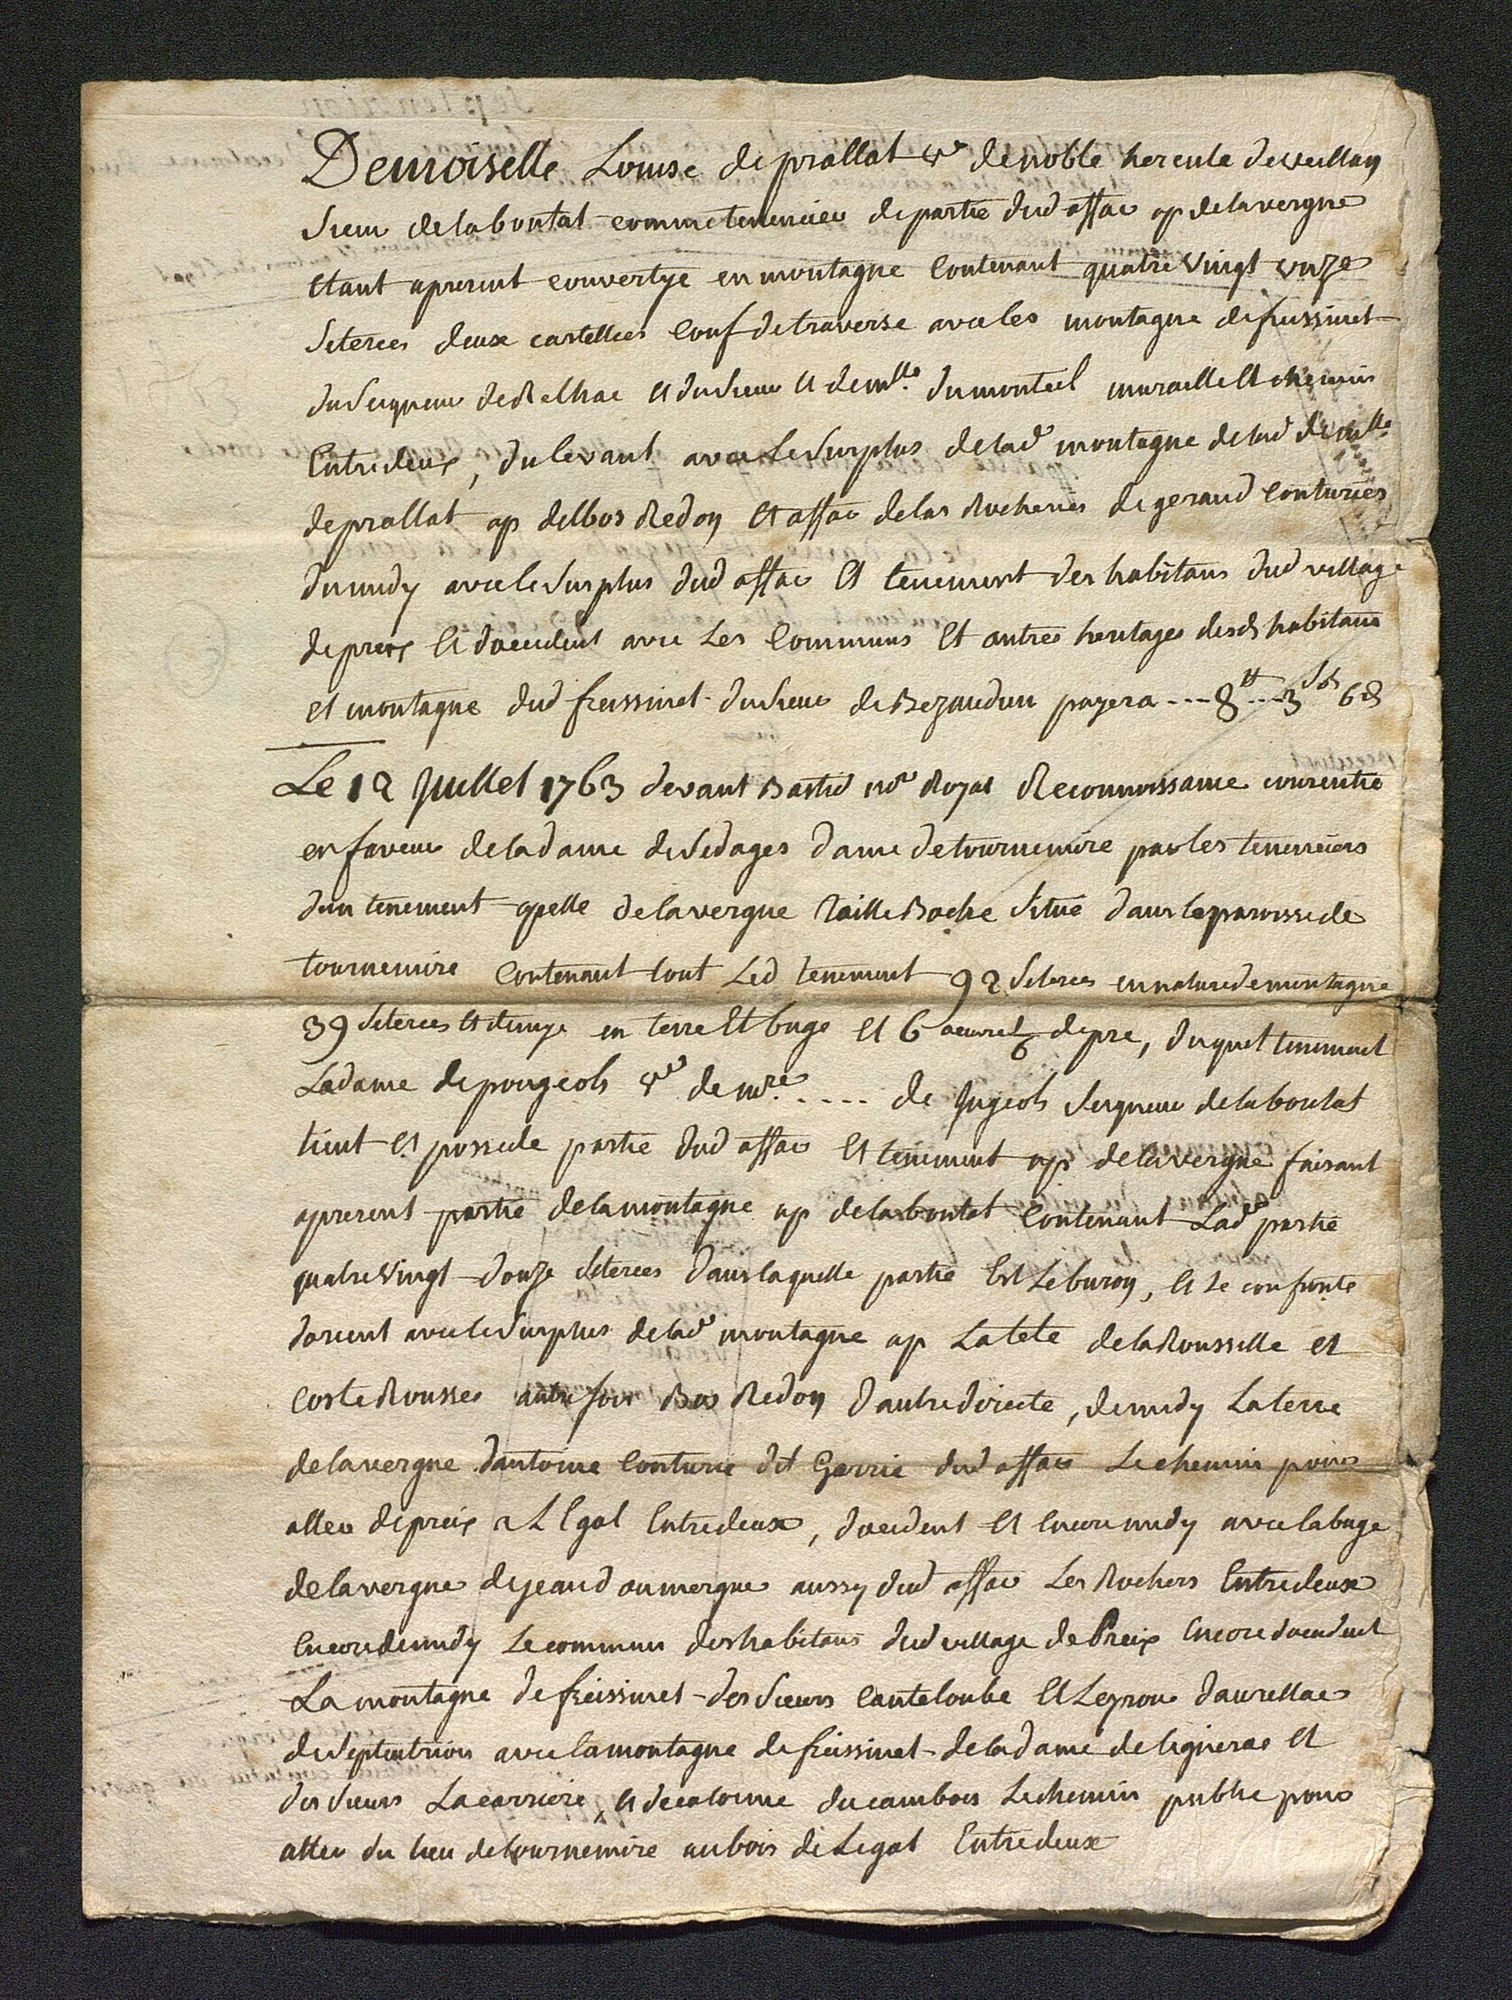 Demoiselle Louise de prallat v.e de noble hercule de veillan
Sieur de la bontat comme tenencier de partie dud affac ap de la vergne
Etant apresent convertye en montagne Contenant quatre vingt unze
Seterces deux cartelleés Conf de traverse avec les montagne de freissinet
du Seigneur de Relhac et du Sieur et dem.lle dumonteil muraille et chemin
Entredeux, du levant avec Le Surplus de lad.e montagne de lad dem.lle
de prallat ap del bos Redon et affac de las Rocheries de geraud Couturier
du midy avec le Surplus dud affac et tenement des habitans dud village
de preix et doccident avec Les Communs et autres heritages desd habitans
et montagne dud freissinet du Sieur de Bezaudun payera --- 8 tt --- 3 sols 6 d
Le 12 Juillet 1763 devant Bastid no.re Royal Reconnoissance consentie
en faveur de la dame de Sedages dame de tournemire par les tenenciers
dun tenement apelle de la vergne Taille Boche Situé dans la parroisse de
tournemire Contenant tout Led tenement 92 Seterces en nature de montagne
39 Seterces et demye en terre et buge et 6 oeuvres 1/6 de pre, duquel tenement
La dame de pougeols v.e de m.re ..... de Jugeols Seigneur de la boutat
tient et possede partie dud affac et tenement ap de la vergne faisant
apresent partie de la montagne ap de la bontat Contenant Lad.e partie
quatre Vingt douze Seterces dans laquelle partie Est Le buron, et se confronte
dorient avec le Surplus de lad.e montagne ap La tete de la Rousselle et
Coste Rousse autre fois Bos Redon d'autre directe, de midy La terre
de la vergne d'antoine Couturie dit Gerrie dud affac Le chemin pour
aller de preix a L Egal Entredeux, doccident et Encore midy avec la buge
de la vergne de jeand aumergue aussy dud affac Les Rochers Entredeux
Encore de midy Le commun des habitans dud village de Preix Encore doccident
La montagne de freissinet des Sieurs Canteloube et Leyrou daurillac
de Septentrion avec la montagne de freissinet de la dame de lignerac et
des Sieurs Lacarriere, et de calonne du cambon Le chemin public pour
aller du lieu de tournemire au bois de Legal Entredeux